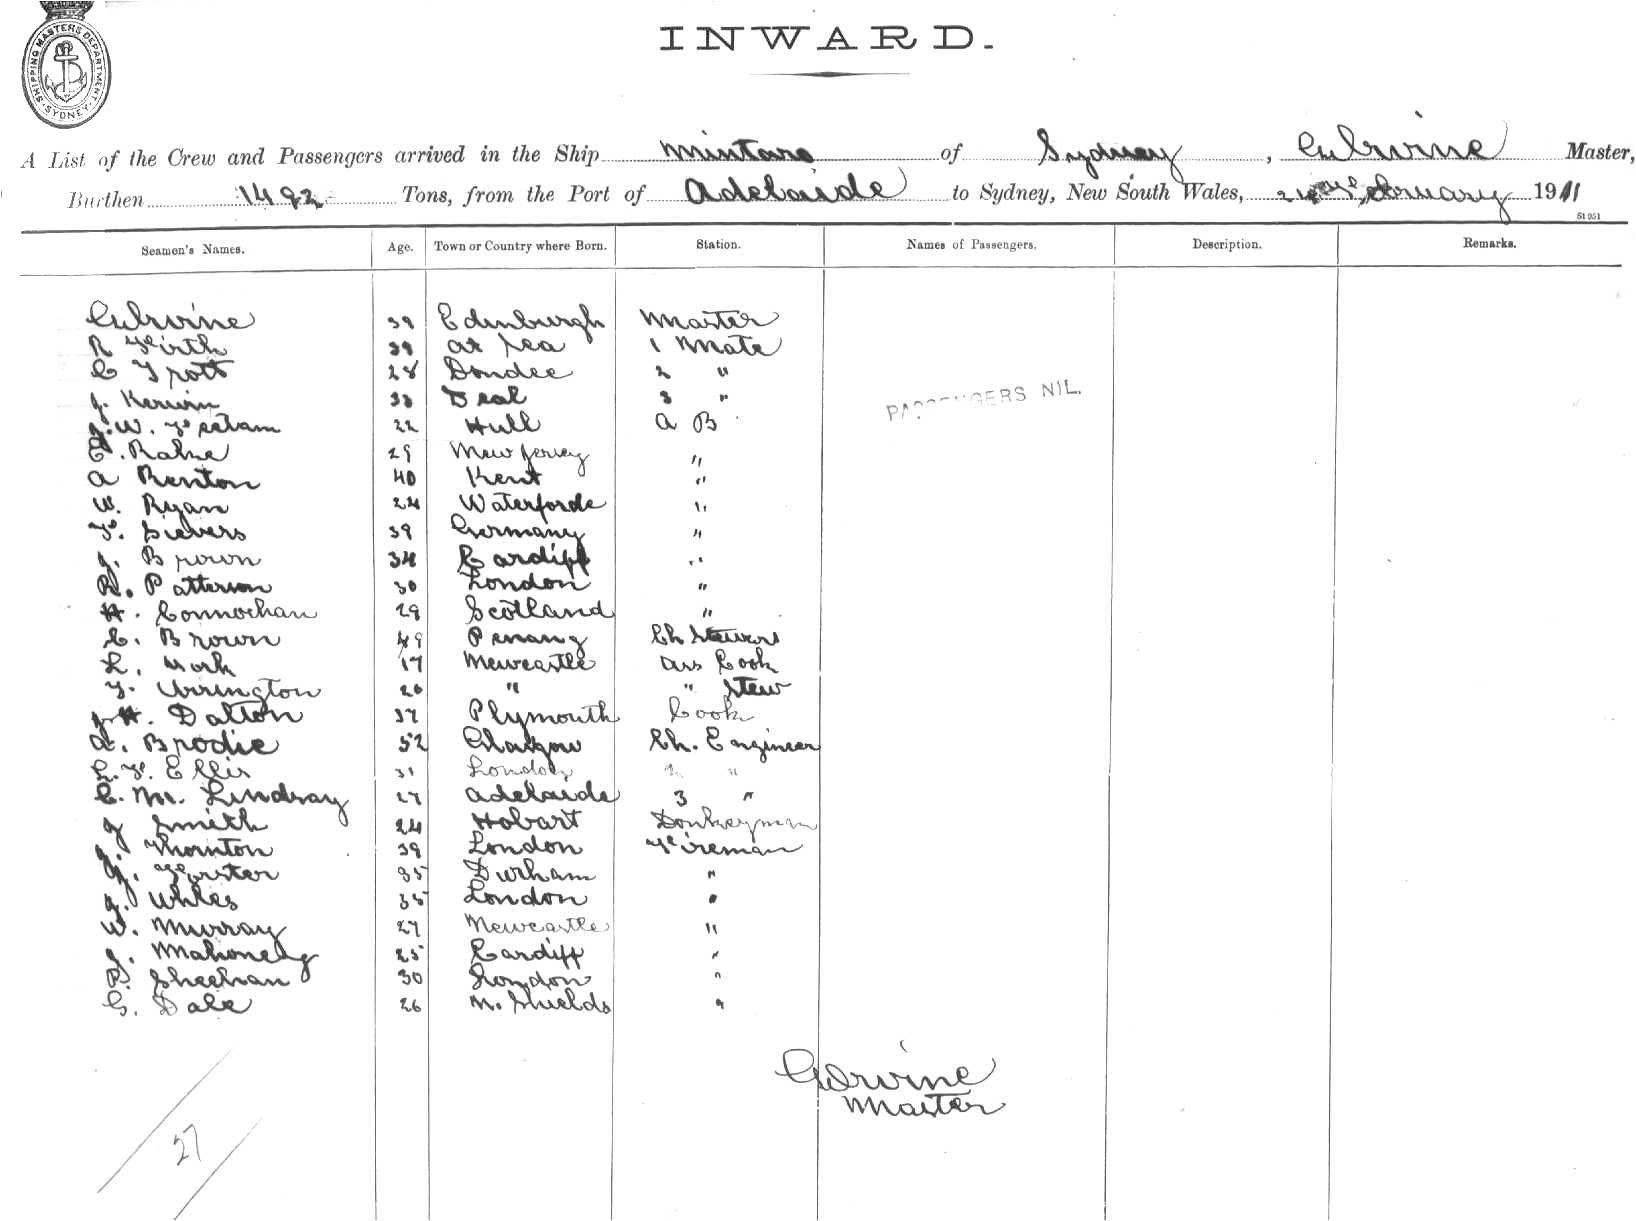 SHIPPING MASTERS DEPARTMENT
SYDNEY
INWARD.
A List of the Crew and Passengers arrived in the Ship Mintaro of Sydney, Irvine Master,
Burthen 1492 Tons, from the Port of Adelaide to Sydney, New South Wales, February 1911
St 951
Seamen's Names. Age. Town or Country where Born. Station. Names of Passengers. Description. Remarks.
Irvine 39 Edinburgh Master
R Firth 39 at Sea 1 Mate
C Trott 28 Dundee 2 "
J. Kerwin 33 Deal 3 "
PASSENGERS NIL.
J. W. 22 Hull A B
E. Rahne 29 New Jersey "
A Renton 40 Kent "
W. Ryan 24 Waterforde "
F. Sievers 39 Germany "
J. Brown 34 Cardiff "
R. Patterson 30 London "
H. Connochan 29 Scotland "
C. Brown 49 Penang Ch Steward
L. York 17 Newcastle Ass Cook
T. Urrington 20 " " Stew
J H. Dalton 37 Plymouth Cook
A. Brodie 52 Glasgow Ch. Engineer
L. F. Ellis 31 London 2 "
C. M. Lindsay 27 Adelaide 3 "
J Smith 24 Hobart Donkeyman
J. Thornton 39 London Fireman
J. Forster 35 Durham "
J. Whiles 35 London "
W. Murray 27 Newcastle "
J. Mahoney 25 Cardiff "
P. Sheehan 30 London "
G. Dale 26 N. Shields "
Irvine
Master
27